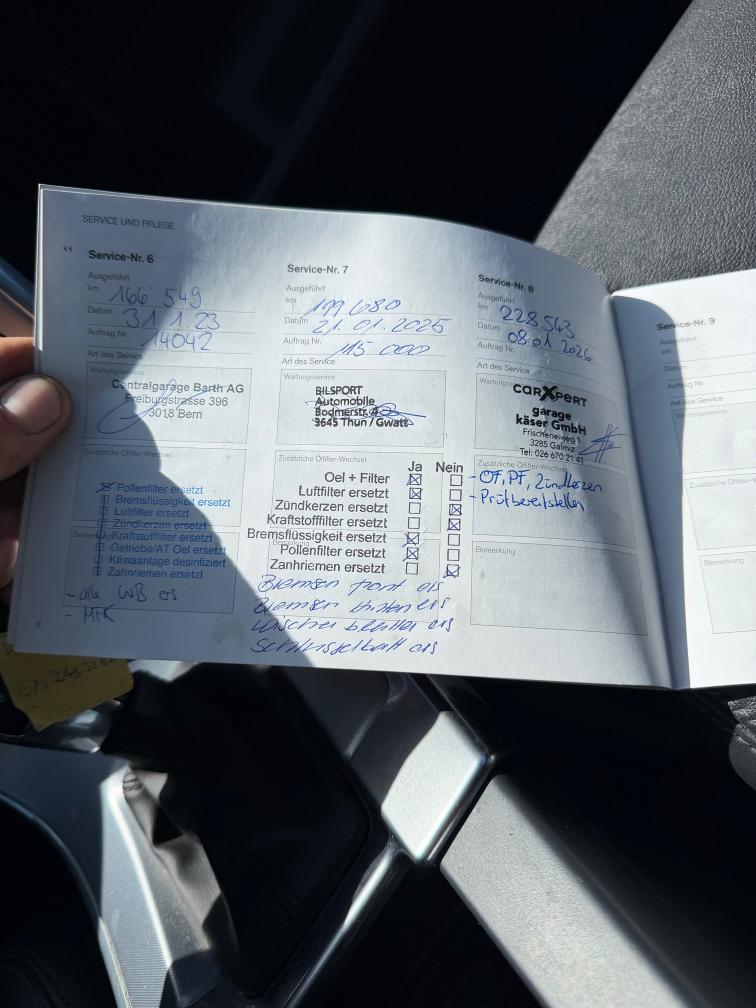 SERVICE UND PFLEGE
Service-Nr. 6
Ausgeführt
km 166 549
Datum 31 1.23
Auftrag Nr. 14042
Art des Service
Wartungsservice
Centralgarage Barth AG
Freiburgstrasse 396
3018 Bern
Zusätzliche Ölfilter-Wechsel
Pollenfilter ersetzt
Bremsflüssigkeit ersetzt
Luftfilter ersetzt
Zündkerzen ersetzt
Kraftstofffilter ersetzt
Bemerkung
Getriebe/AT Oel ersetzt
Klimaanlage desinfiziert
Zahnriemen ersetzt
- alle WB ers
- MFK
8
Service-Nr. 7
Ausgeführt
km 199 680
Datum 21.01.2025
Auftrag Nr. 115 000
Art des Service
Wartungsservice
BILSPORT
Automobile
Bodmerstr. 4
3645 Thun / Gwatt
Zusätzliche Ölfilter-Wechsel
Ja Nein
Oel + Filter
Luftfilter ersetzt
Zündkerzen ersetzt
Kraftstofffilter ersetzt
Bremsflüssigkeit ersetzt
Bemerkung
Pollenfilter ersetzt
Zanhriemen ersetzt
Bremsen font ers
Bremsen hinten ers
Wischer blätter ers
Schlüsselbatt ers
Service-Nr. 8
Ausgeführt
km 228 543
Datum 08.01 2026
Auftrag Nr.
Art des Service
Wartungsservice
CARXPERT
garage
käser GmbH
Frischeneiweg 1
3285 Galmiz
Tel: 026 670 21 41
Zusätzliche Ölfilter-Wechsel
- OF, PF, Zündkerzen
- Prüfbereitstellen
Bemerkung
Service-Nr. 9
Ausgeführt
km
Datum
Auftrag Nr.
Art des Service
Wartungsservice
Bemerkung